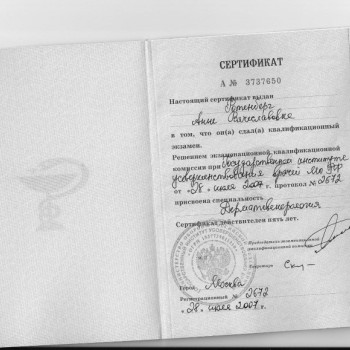 СЕРТИФИКАТ
А № 3737650
Настоящий сертификат выдан
Анне Вячеславовне
в том, что он(а) сдал(а) квалификационный
экзамен.
Решением экзаменационной квалификационной
комиссии при Государственном институте
усовершенствования врачей МО РФ
от «28» июля 2007 г. протокол № 2672
присвоена специальность
Дерматовенерология
Сертификат действителен пять лет.
Председатель экзаменационной
квалификационной комиссии
Секретарь
Город Москва
Регистрационный № 2672
«28» июля 2007 г.